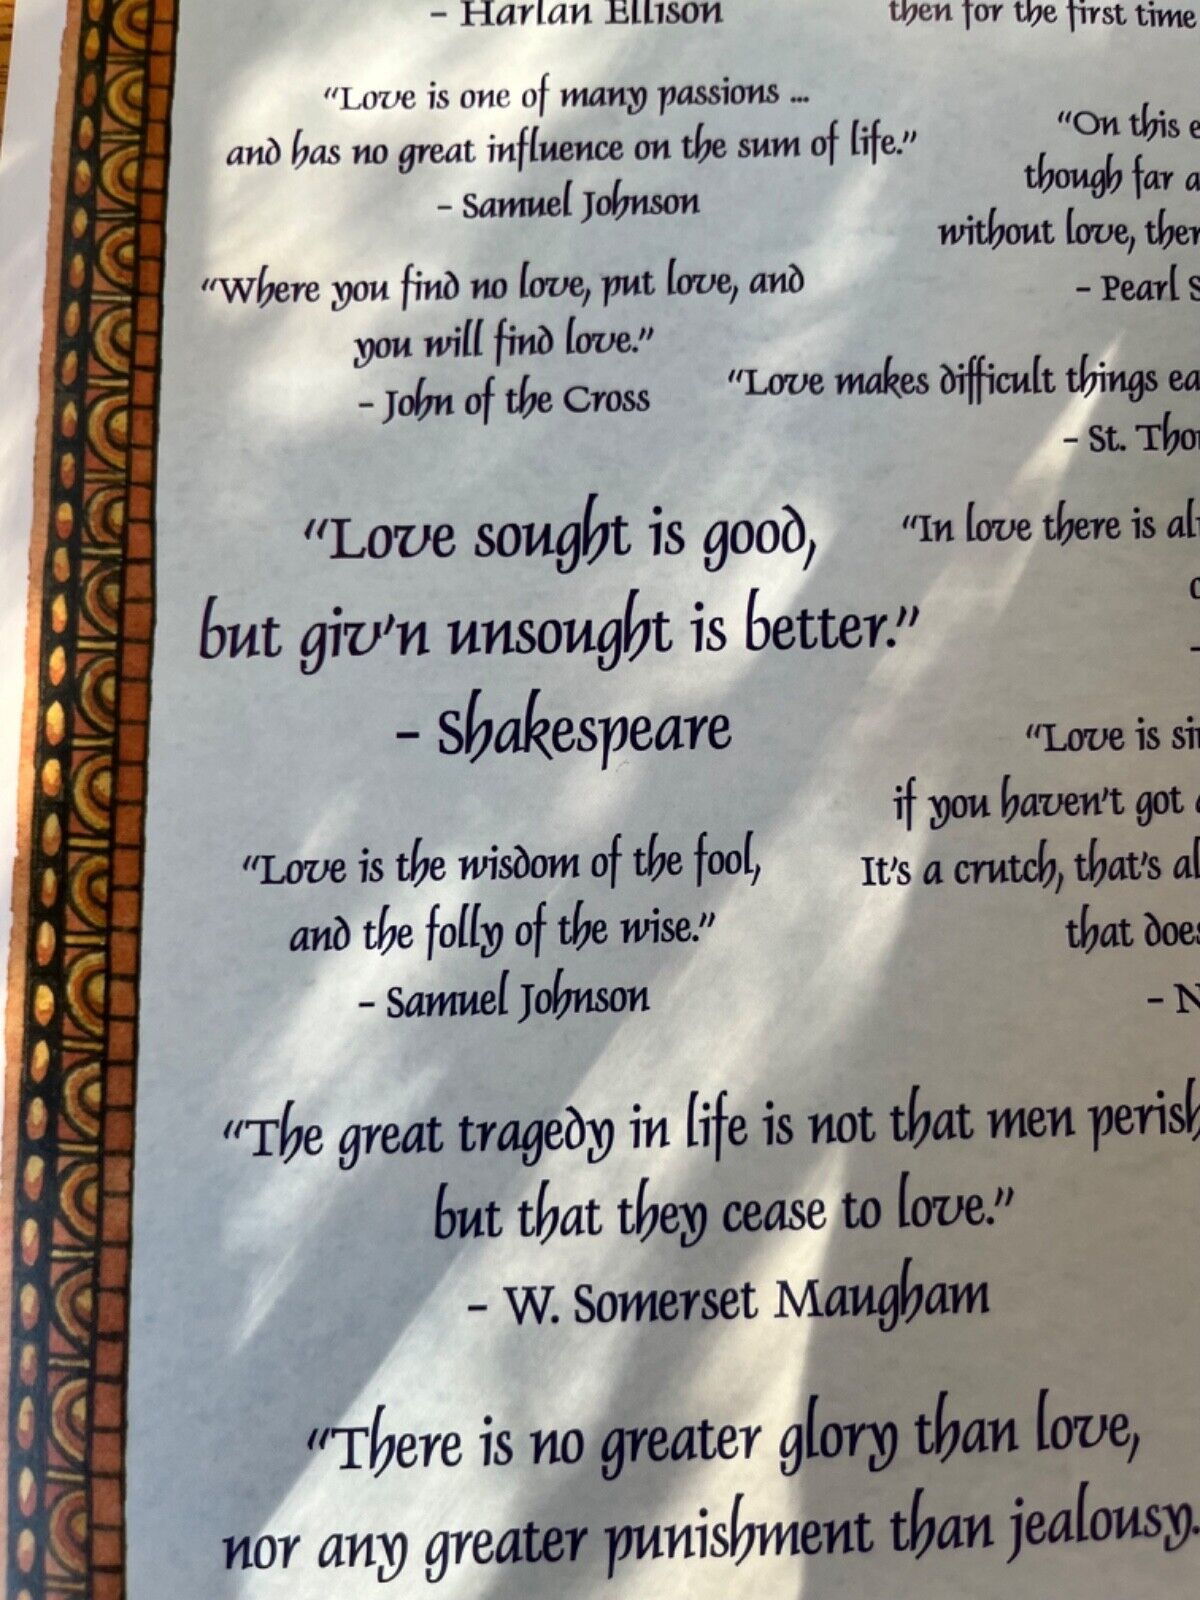 - Harlan Ellison
"Love is one of many passions ...
and has no great influence on the sum of life."
- Samuel Johnson
"Where you find no love, put love, and
you will find love."
- John of the Cross
"Love sought is good,
but giv'n unsought is better."
- Shakespeare
"Love is the wisdom of the fool,
and the folly of the wise."
- Samuel Johnson
then for the first time
"On this
though far
without love,
- Pearl
"Love makes difficult things
- St.
"In love there is
"Love is
if you haven't got
It's a crutch, that's
that
"The great tragedy in life is not that men perish
but that they cease to love."
- W. Somerset Maugham
"There is no greater glory than love,
nor any greater punishment than jealousy.